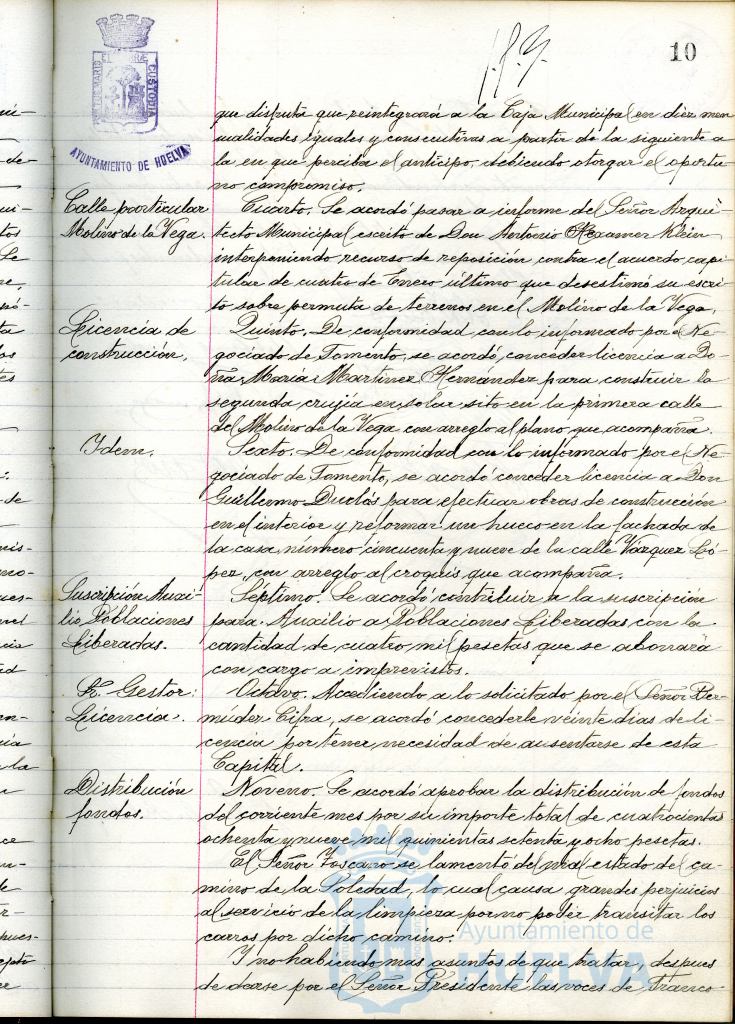 10
PORTUS MARIS ET TERRAE CUSTODIA
AYUNTAMIENTO DE HUELVA
que disfruta que reintegrará a la Caja Municipal en diez men
sualidades iguales y consecutivas a partir de la siguiente a
la en que perciba el anticipo, debiendo otorgar el oportu
no compromiso.
Calle particular
Molino de la Vega.
Cuarto. Se acordó pasar a informe del Señor Arqui-
tecto Municipal escrito de Don Antonio Klein
interponiendo recurso de reposición contra el acuerdo capi-
tular de cuatro de Enero último que desestimó su escri-
to sobre permuta de terrenos en el Molino de la Vega.
Licencia de
construcción.
Quinto. De conformidad con lo informado por el Ne-
gociado de Fomento, se acordó conceder licencia a Do-
ña María Martínez Hernández para construir la
segunda crujía en solar sito en la primera calle
del Molino de la Vega con arreglo al plano que acompaña.
Idem.
Sexto. De conformidad con lo informado por el Ne-
gociado de Fomento, se acordó conceder licencia a Don
Guillermo Duclós para efectuar obras de construcción
en el interior y reformar un hueco en la fachada de
la casa número cincuenta y nueve de la calle Vázquez Ló-
pez, con arreglo al croquis que acompaña.
Suscripción Auxi-
lio Poblaciones
Liberadas.
Séptimo. Se acordó contribuir a la suscripción
para Auxilio a Poblaciones Liberadas con la
cantidad de cuatro mil pesetas que se abonará
con cargo a imprevistos.
Sr. Gestor:
Licencia.
Octavo. Accediendo a lo solicitado por el Señor Ber-
múdez Cifra, se acordó concederle veinte días de li-
cencia por tener necesidad de ausentarse de esta
Capital.
Distribución
fondos.
Noveno. Se acordó aprobar la distribución de fondos
del corriente mes por su importe total de cuatrocientas
ochenta y nueve mil quinientas setenta y ocho pesetas.
El Señor Toscano se lamentó del mal estado del ca-
mino de la Soledad, lo cual causa grandes perjuicios
al servicio de la limpieza por no poder transitar los
carros por dicho camino.
Y no habiendo mas asuntos de que tratar, despues
de darse por el Señor Presidente las voces de Franco
Ayuntamiento de
HUELVA